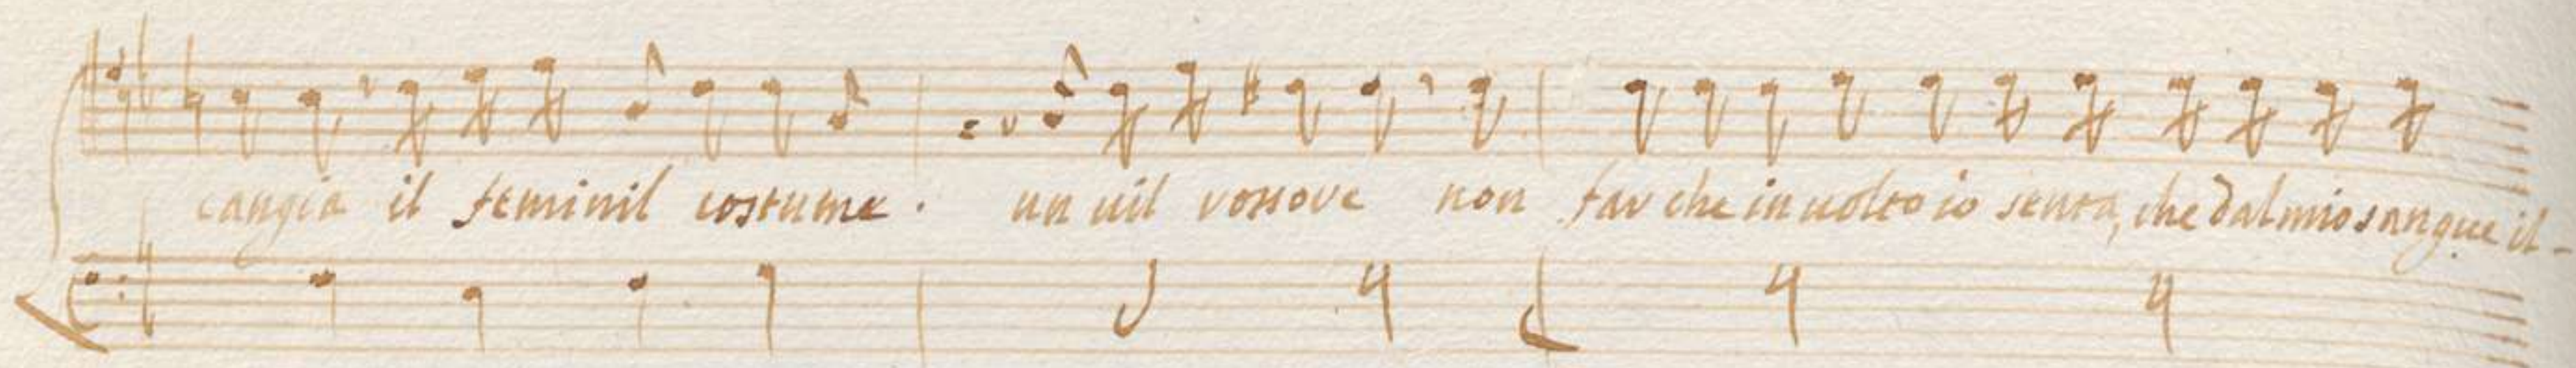 cangia il feminil costume. un uil rossore non far che in uolto io senta, che dal mio sangue il-